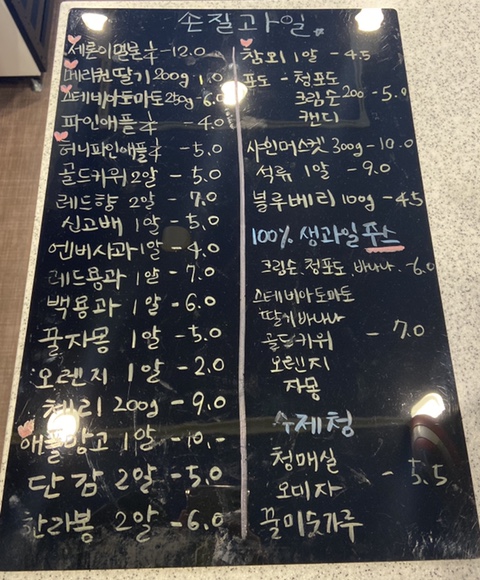 손질과일
세론이멜론 1/4 - 12.0
메리퀸딸기 200g - 1.0
스테비아토마토 250g - 6.0
파인애플 1/4 - 4.0
허니파인애플 1/4 - 5.0
골드키위 2알 - 5.0
레드향 2알 - 7.0
신고배 1알 - 5.0
엔비사과 1알 - 4.0
레드용과 1알 - 7.0
백용과 1알 - 6.0
꿀자몽 1알 - 5.0
오렌지 1알 - 2.0
체리 200g - 9.0
애플망고 1알 - 10.-
단감 2알 - 5.0
한라봉 2알 - 6.0
참외 1알 - 4.5
포도 - 청포도
크림슨 200 - 5.0
캔디
샤인머스켓 300g - 10.0
석류 1알 - 9.0
블루베리 100g - 4.5
100% 생과일 쥬스
크림슨, 청포도 바나나 - 6.0
스테비아토마토
딸기바나나
골드키위 - 7.0
오렌지
자몽
수제청
청매실
오미자 - 5.5
꿀미숫가루